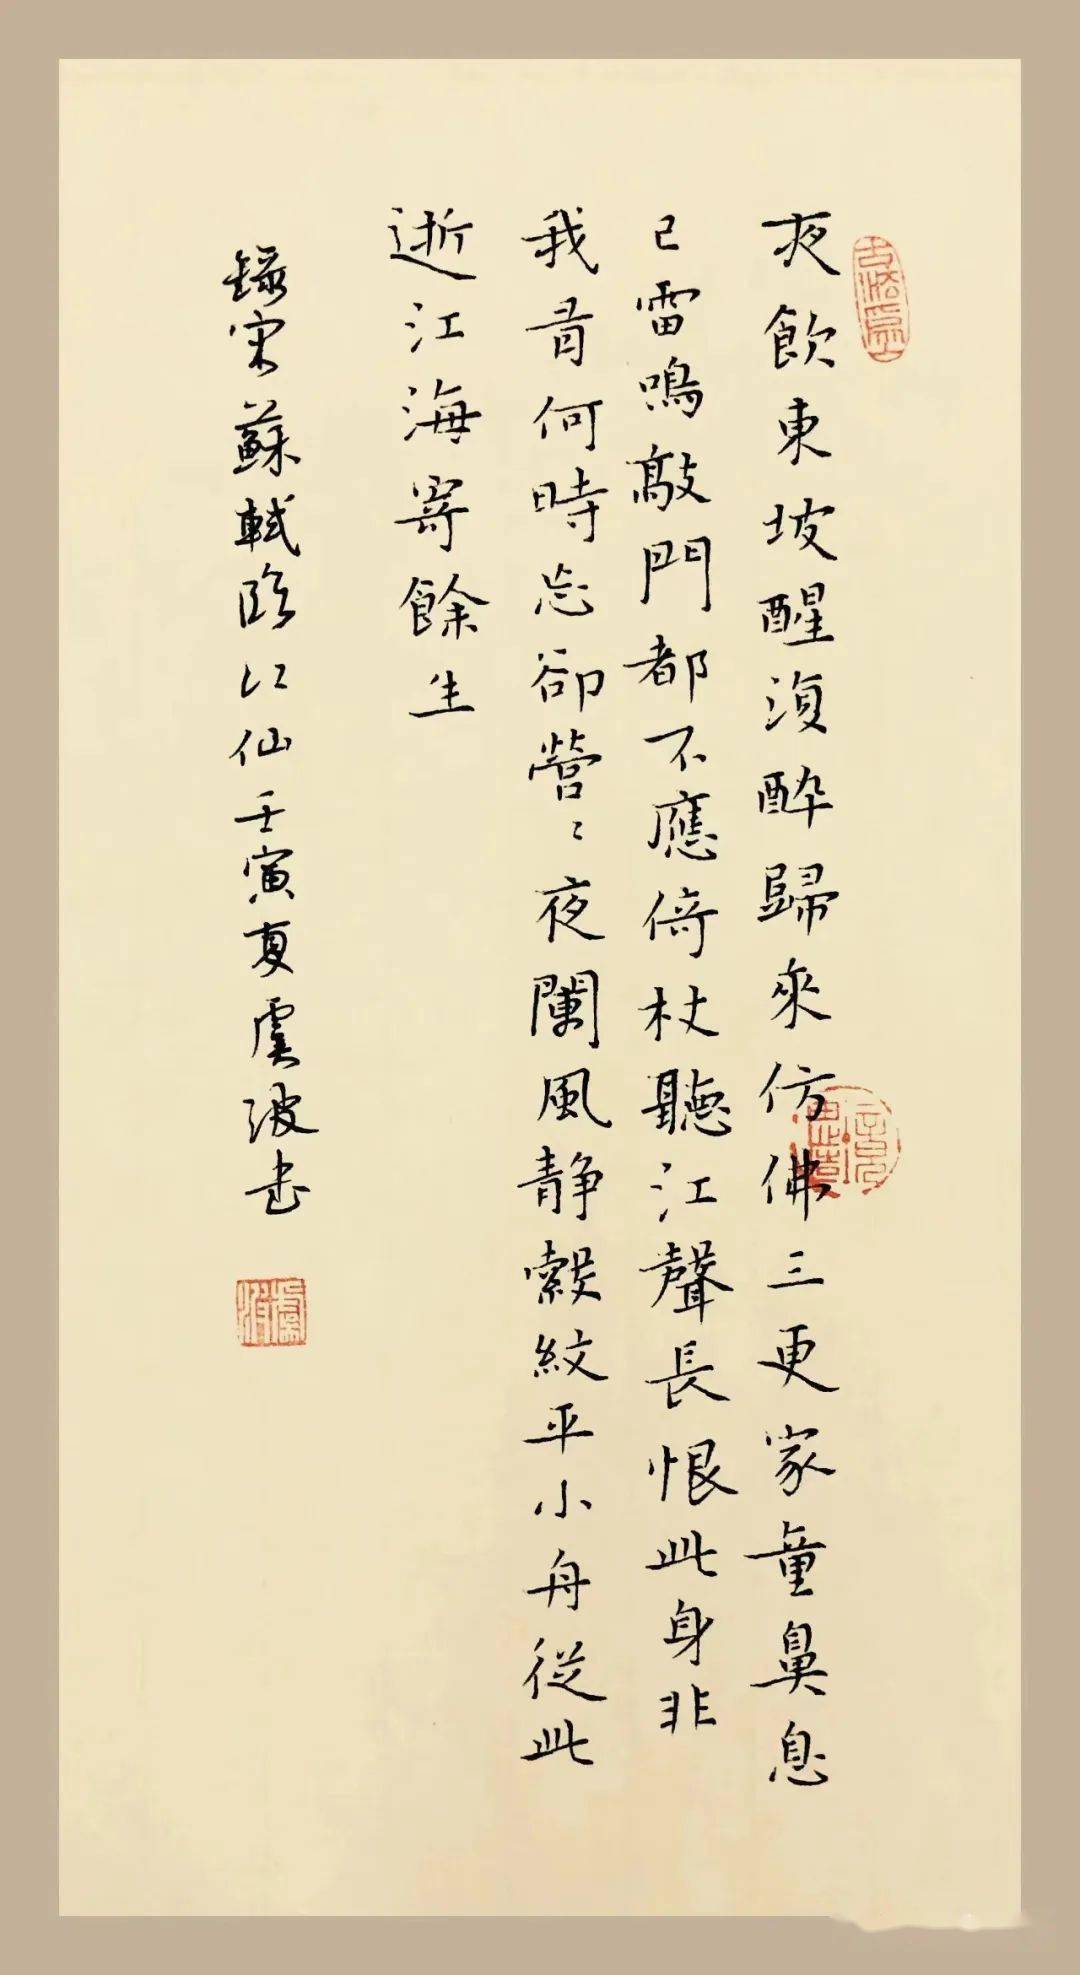 夜飲東坡醒復醉歸來仿佛三更家童鼻息
已雷鳴敲門都不應倚杖聽江聲長恨此身非
我有何時忘卻營〻夜闌風靜縠紋平小舟從此
逝江海寄餘生
錄宋蘇軾臨江仙壬寅夏虞波书
虞波